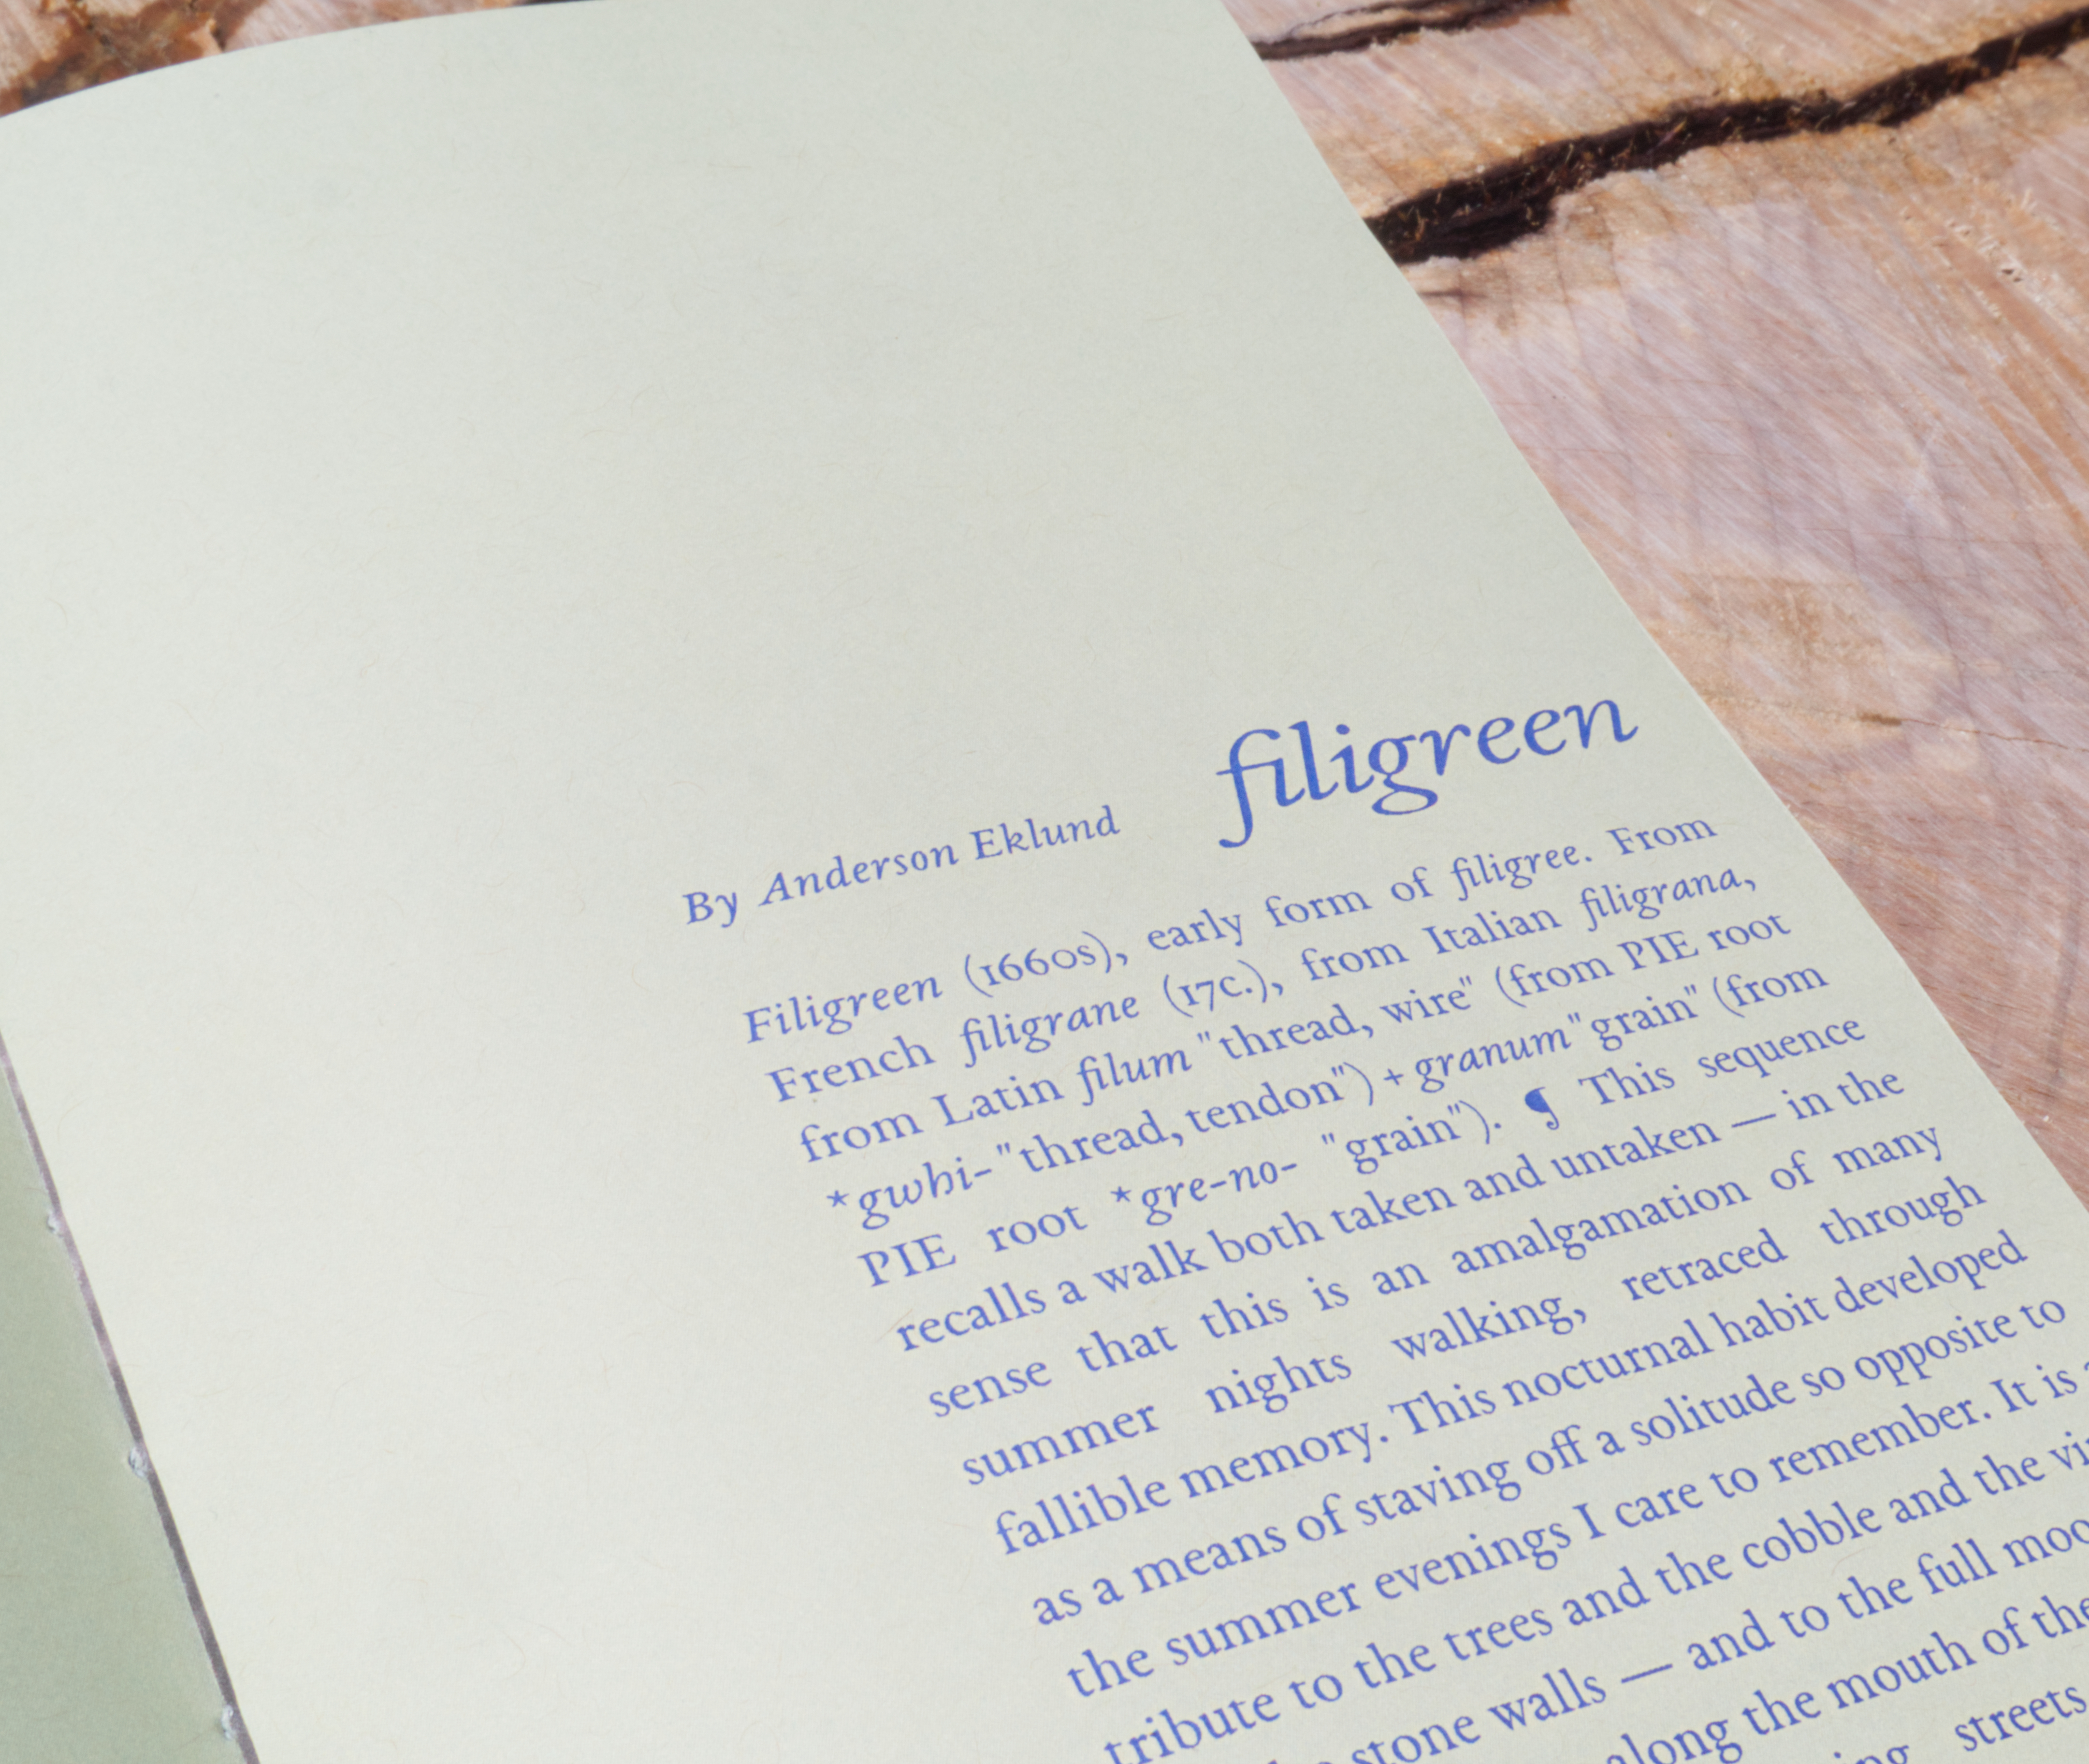 filigreen
By Anderson Eklund
Filigreen (1660s), early form of filigree. From
French filigrane (17c.), from Italian filigrana,
from Latin filum "thread, wire" (from PIE root
*gwhi- "thread, tendon") + granum "grain" (from
PIE root *gre-no- "grain"). ¶ This sequence
recalls a walk both taken and untaken — in the
sense that this is an amalgamation of many
summer nights walking, retraced through
fallible memory. This nocturnal habit developed
as a means of staving off a solitude so opposite to
the summer evenings I care to remember. It is
tribute to the trees and the cobble and the
stone walls — and to the full
along the mouth of the
streets